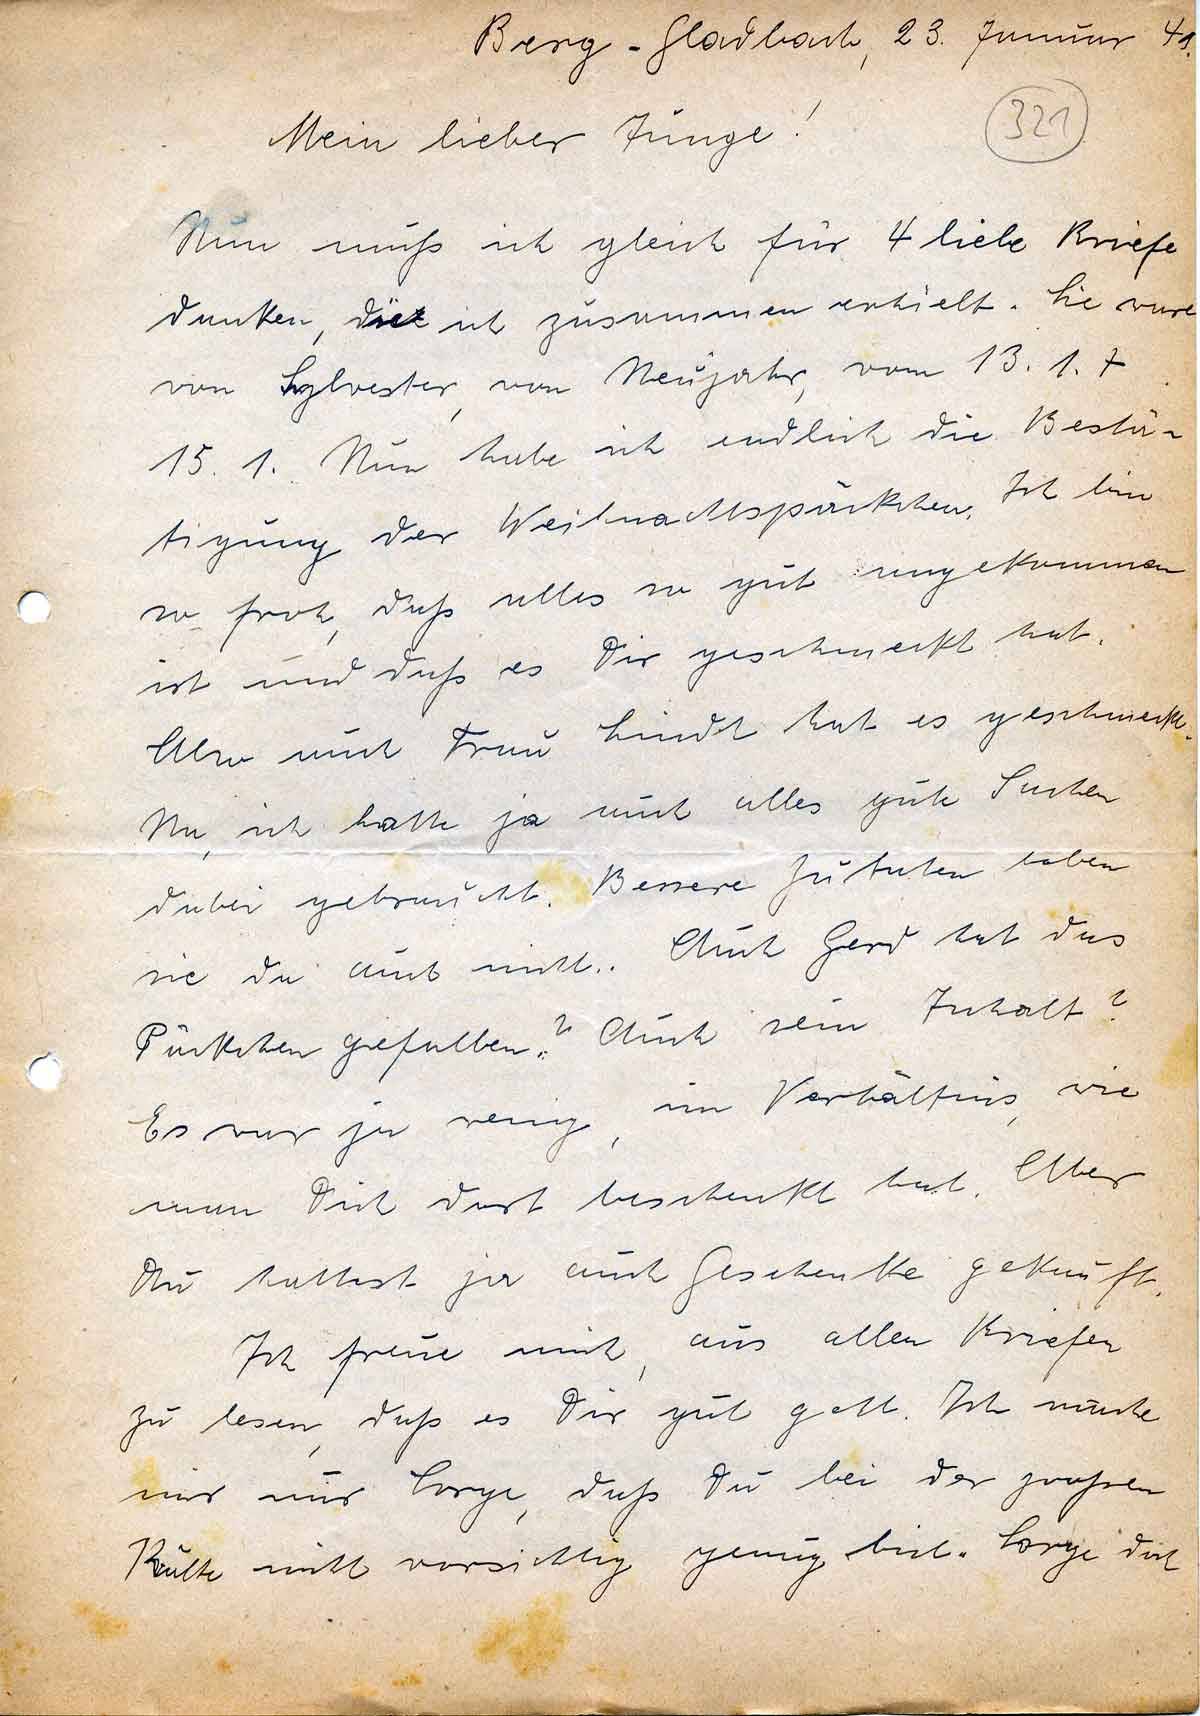 Berg-Gladbach, 23. Januar 41.
321
Mein lieber Junge!
Nun muß ich gleich für 4 liebe Briefe
danken, die ich zusammen erhielt. Sie ware
von Sylvester, von Neujahr, vom 13. 1. +
15. 1. Nun habe ich endlich die Bestä-
tigung der Weihnachtspäckchen. Ich bin
so froh, daß alles so gut angekommen
ist und daß es Dir geschmeckt hat.
Also auch Frau hat es geschmeckt.
Na, ich hatte ja auch alles gute Sachen
dabei gebraucht. Bessere Zutaten haben
sie da auch nicht. Auch Gerd hat das
Päckchen gefallen? Auch sein Inhalt?
Es war ja wenig, im Verhältnis, wie
man Dich dort beschenkt hat. Aber
Du hattest ja auch Geschenke gekauft.
Ich freue mich, aus allen Briefen
zu lesen, daß es Dir gut geht. Ich mache
mir nur Sorge, daß Du bei der großen
Kälte nicht vorsichtig genug bist. Sorge dich